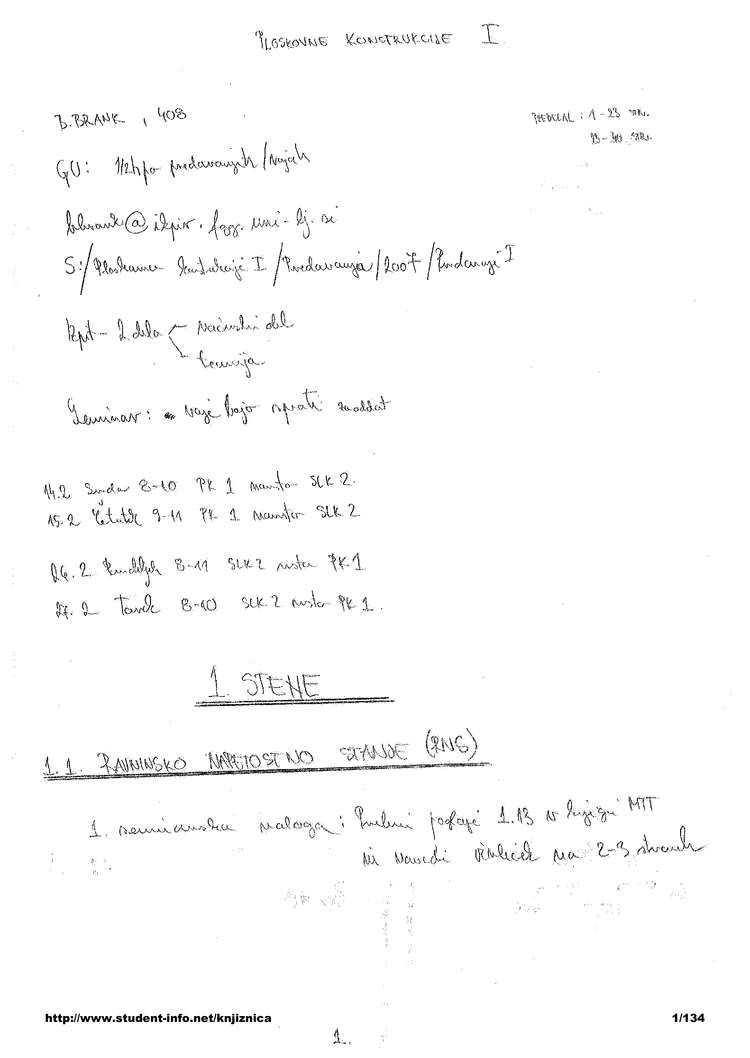 PLOSKOVNE KONSTRUKCIJE I
B. BRANK, 408
PREDELAL: 1-23 STR.
23-30 STR.
GU: 1/2h po predavanjih/vajah
bbrank@ikpir.fgg.uni-lj.si
S:/Ploskovne konstrukcije I/Predavanja/2007/Predavanja I
Izpit - 2 dela računski del
teorija
Seminar: vaje bojo sprati
14.2 Sreda 8-10 PK 1 namesto SLK 2.
15.2 Četrtek 9-11 PK 1 namesto SLK 2
26.2 Ponedeljek 8-11 SLK 2 mesto PK 1
27.2 Torek 8-10 SLK 2 mesto PK 1.
1. STENE
1.1. RAVNINSKO NAPETOSTNO STANJE (RNS)
1. seminarska naloga: Preberi poglavje 1.13 v knjigi MTT
in naredi izvleček na 2-3 straneh
http://www.student-info.net/knjiznica
1/134
1.